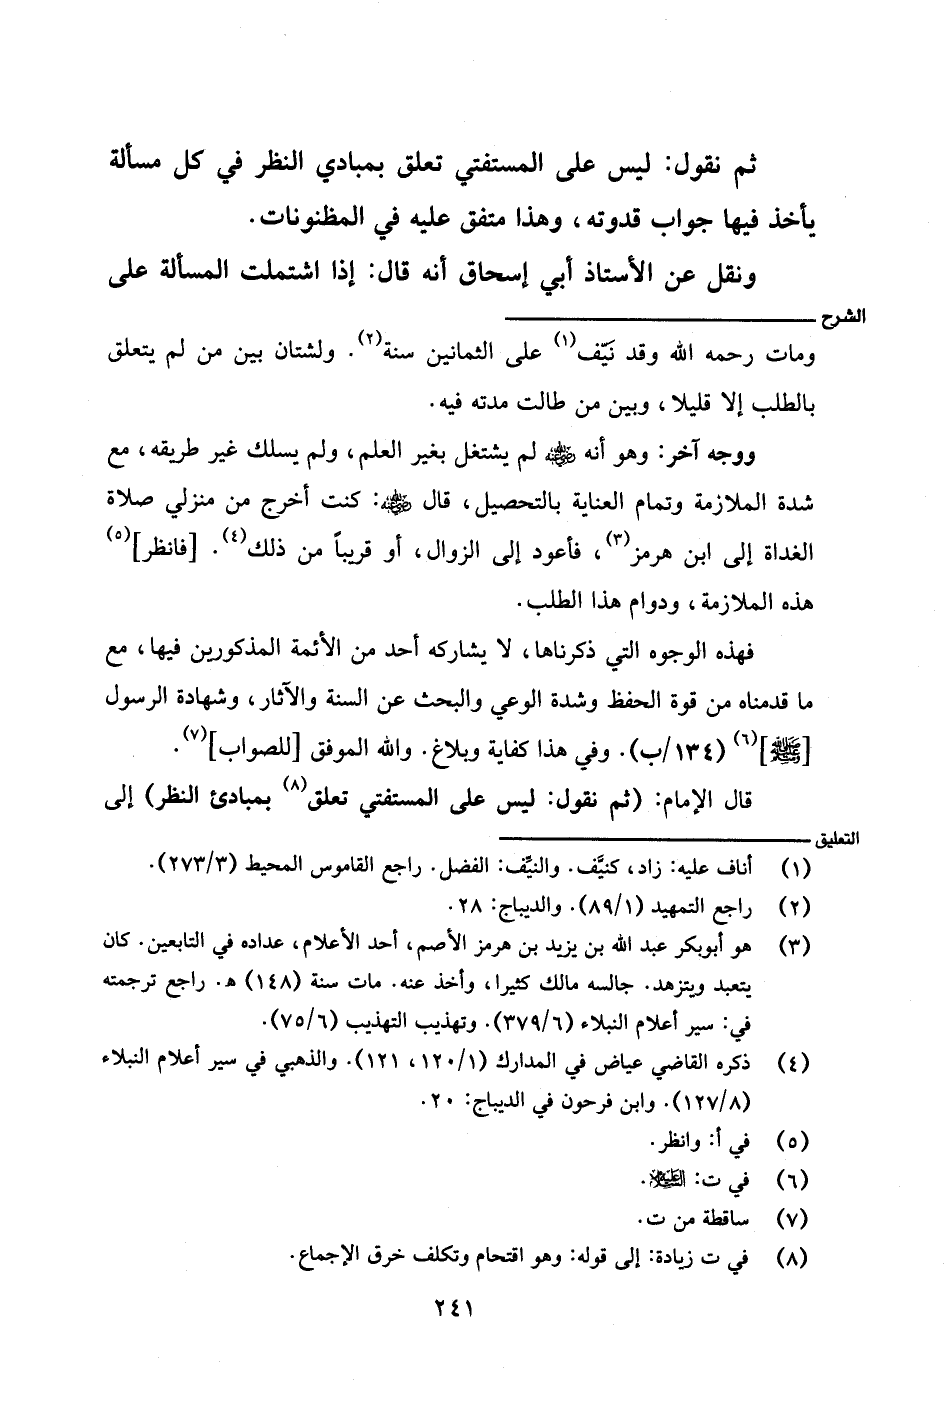 ثم نقول: ليس على المستفتي تعلق بمبادي النظر في كل مسألة
يأخذ فيها جواب قدوته، وهذا متفق عليه في المظنونات.
ونقل عن الأستاذ أبي إسحاق أنه قال: إذا اشتملت المسألة على
الشرح
ومات رحمه الله وقد نَيّف(١) على الثمانين سنة(٢). ولشتان بين من لم يتعلق
بالطلب إلا قليلا، وبين من طالت مدته فيه.
ووجه آخر: وهو أنه رضي الله عنه لم يشتغل بغير العلم، ولم يسلك غير طريقه، مع
شدة الملازمة وتمام العناية بالتحصيل، قال رضي الله عنه: كنت أخرج من منزلي صلاة
الغداة إلى ابن هرمز(٣)، فأعود إلى الزوال، أو قريباً من ذلك(٤). [فانظر](٥)
هذه الملازمة، ودوام هذا الطلب.
فهذه الوجوه التي ذكرناها، لا يشاركه أحد من الأئمة المذكورين فيها، مع
ما قدمناه من قوة الحفظ وشدة الوعي والبحث عن السنة والآثار، وشهادة الرسول
[ﷺ](٦) (١٣٤/ب). وفي هذا كفاية وبلاغ. والله الموفق [للصواب](٧).
قال الإمام: (ثم نقول: ليس على المستفتي تعلق(٨) بمبادئ النظر) إلى
التعليق
(١) أناف عليه: زاد، كنيَّف. والنيِّف: الفضل. راجع القاموس المحيط (٢٧٣/٣).
(٢) راجع التمهيد (٨٩/١). والديباج: ٢٨.
(٣) هو أبوبكر عبد الله بن يزيد بن هرمز الأصم، أحد الأعلام، عداده في التابعين. كان
يتعبد ويتزهد. جالسه مالك كثيرا، وأخذ عنه. مات سنة (١٤٨) ه. راجع ترجمته
في: سير أعلام النبلاء (٣٧٩/٦). وتهذيب التهذيب (٧٥/٦).
(٤) ذكره القاضي عياض في المدارك (١٢٠/١، ١٢١). والذهبي في سير أعلام النبلاء
(١٢٧/٨). وابن فرحون في الديباج: ٢٠.
(٥) في أ: وانظر.
(٦) في ت: عليه السلام.
(٧) ساقطة من ت.
(٨) في ت زيادة: إلى قوله: وهو اقتحام وتكلف خرق الإجماع.
٢٤١